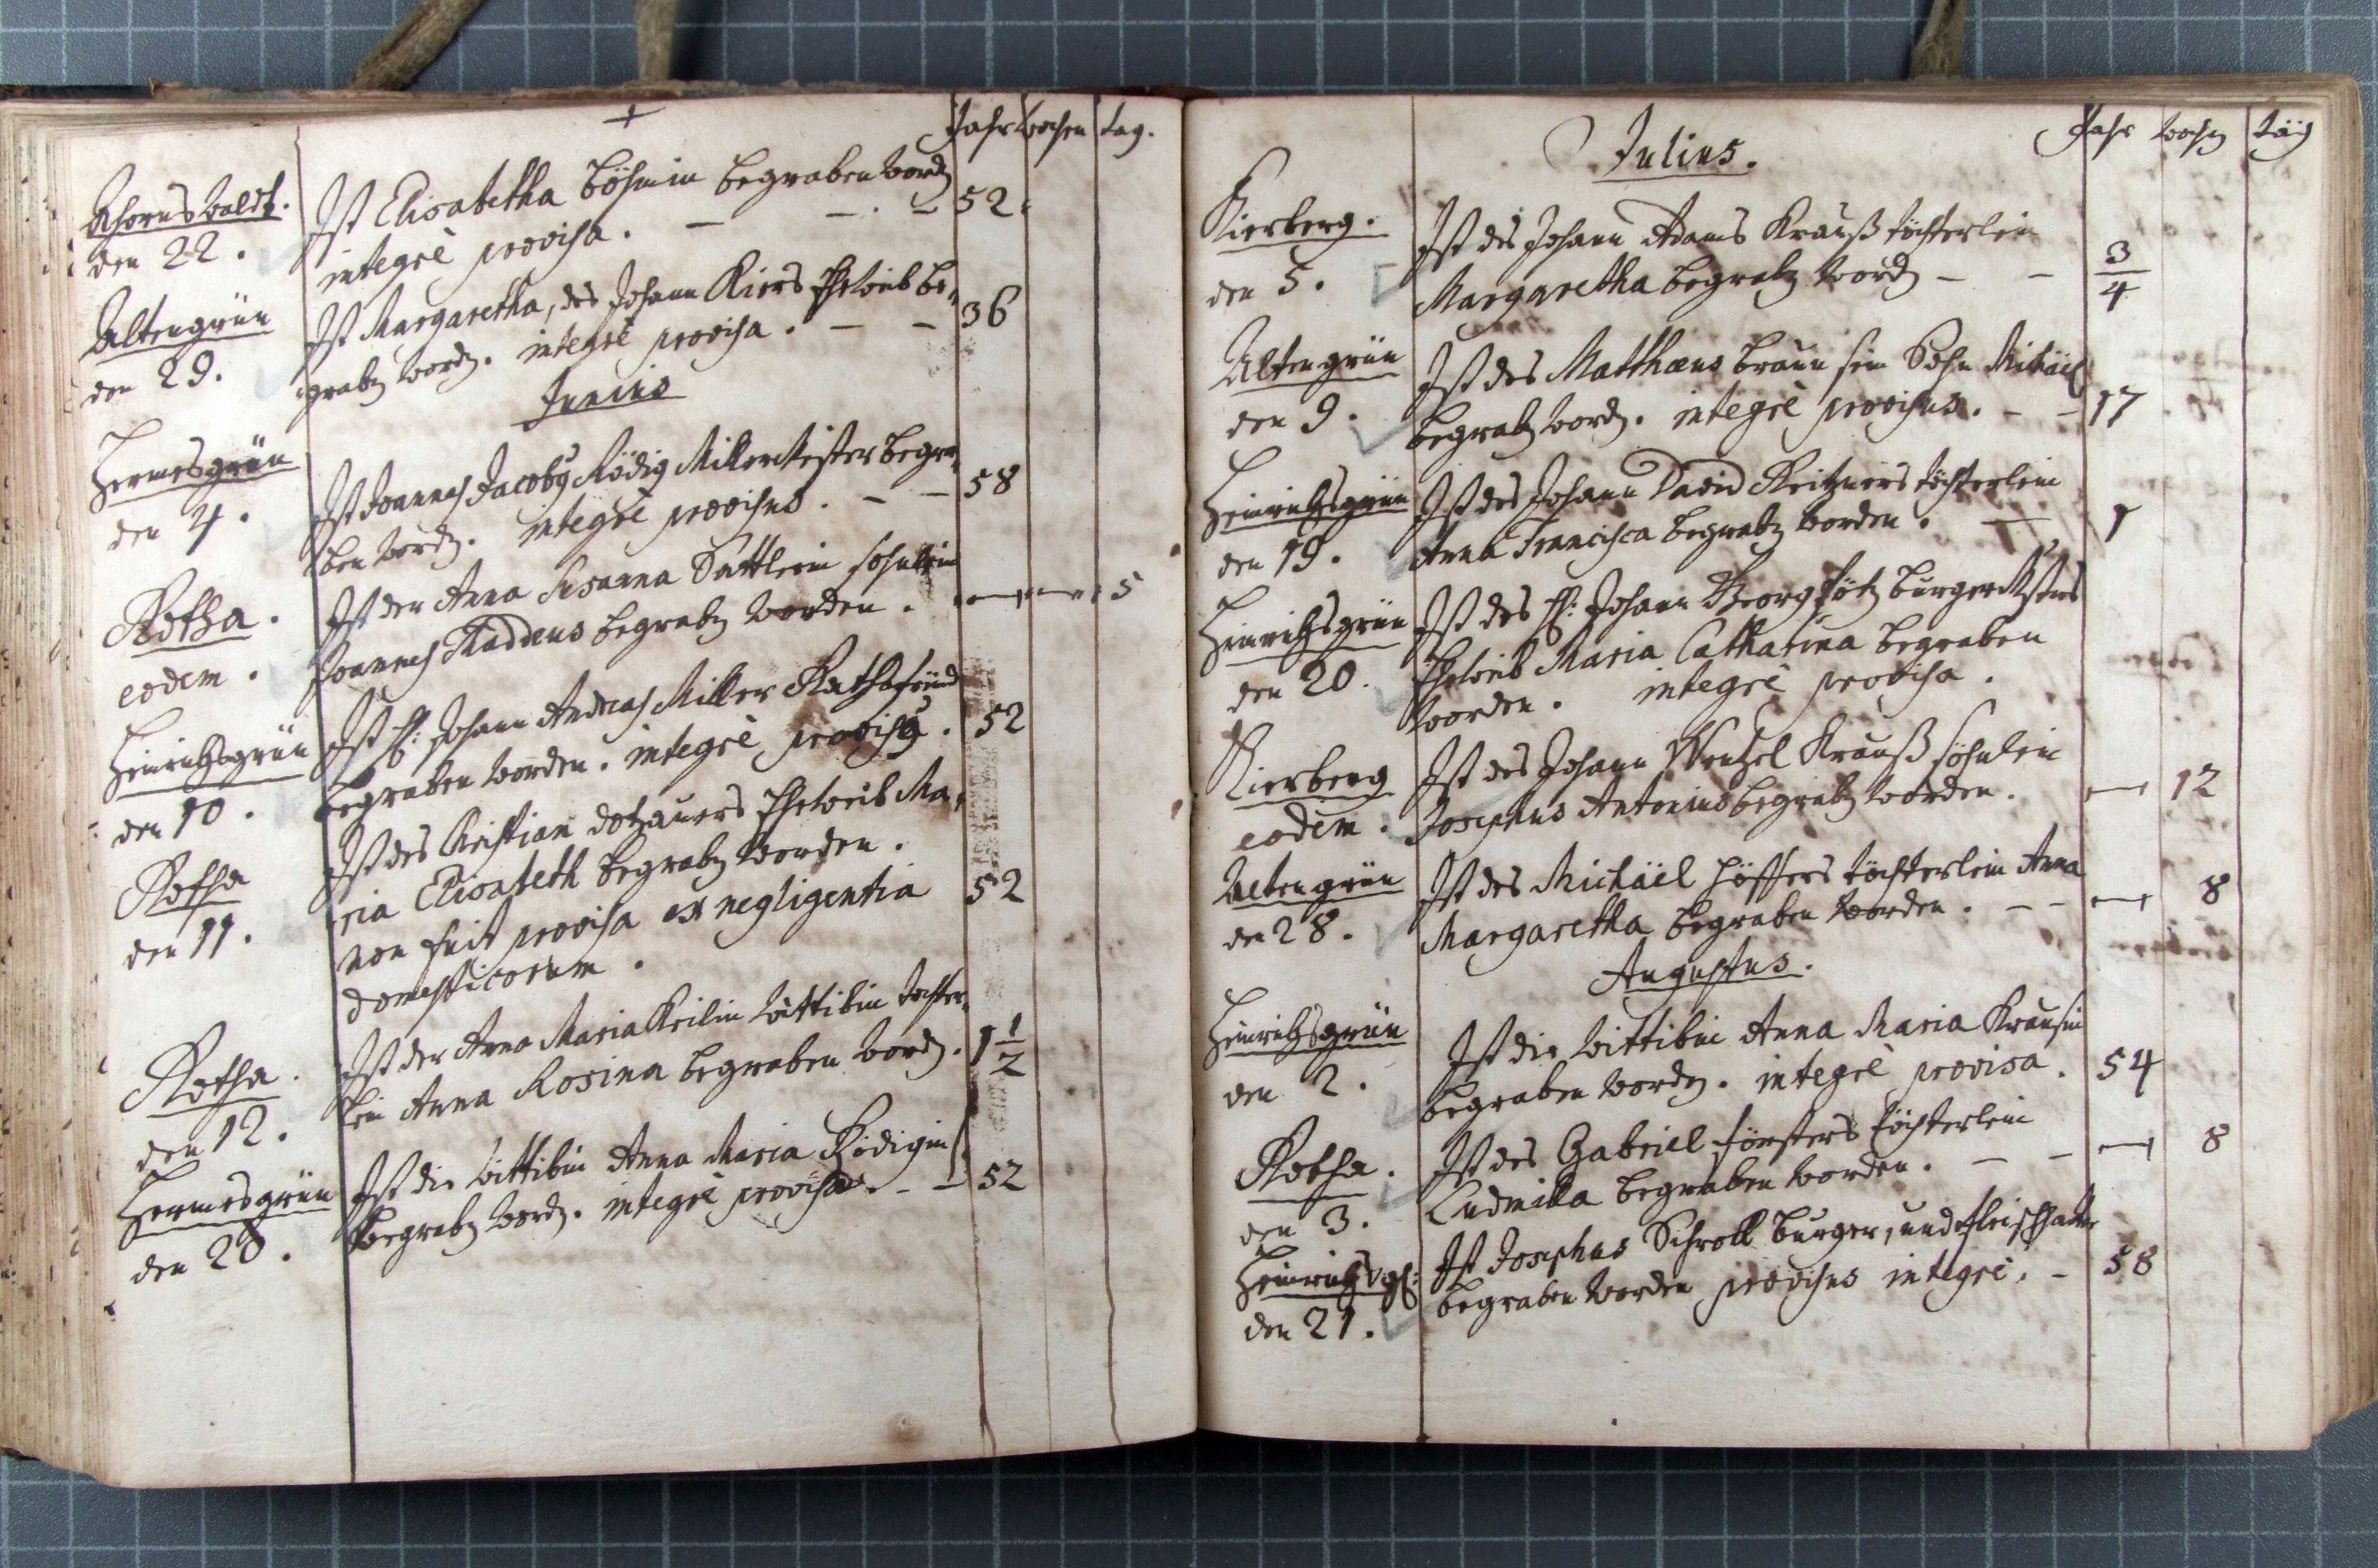 Jahr Wochen tag.
Ahornswaldt.
den 22.
Ist Elisabetha Böhmin begraben word
integrè provisa. 52.
Altengrün
den 29.
Ist Margaretha, des Johann Kiers Eheweib be¸
grabn wordn. integrè provisa. 36
Junius
Hermesgrün
den 4.
Ist Joannes Jacobus Rödig Millermeister begra¸
ben wordn. integrè provisus. 58
Rotha.
eodem.
Ist der Anna Susanna Sattlerin söhnlein
Joannes Thaddeus begrabn worden. 5
Heinrichsgrün
den 10.
Ist H: Johann Andreas Miller Rathsfreünd
begraben worden. integrè provisus. 52
Rotha
den 11.
Ist des Christian dotzauers Eheweib Ma¸
ria Elisabeth begrabn worden.
non fuit provisa ex negligentia 52
domesticorum.
Rotha.
den 12.
Ist der Anna Maria Keilin Wittibin tochter¸
lein Anna Rosina begraben wordn. 1 1/2
Hermesgrün
den 20.
Ist die Wittibin Anna Maria Rödigin
begrabn wordn. integrè provisa. 52
Jahr Wochn täg
Julius.
Kierberg.
den 5.
Ist des Johann Adams Krauß töchterlein
Margaretha begrabn wordn 3/4
Altengrün
den 9.
Ist des Matthæus Braun sein Sohn Michäel
begrabn wordn. integrè provisus. 17
Heinrichsgrün
den 19.
Ist des Johann David Reitzners töchterlein
Anna Francisca begrabn worden. 1
Heinrichsgrün
den 20.
Ist des H: Johann Georg burgermsters
Eheweib Maria Catharina begraben
worden. integrè provisa.
Kierberg
eodem.
Ist des Johann Wentzel Krauß söhnlein
Josephus Antonius begrabn worden. 12
Altengrün
den 28.
Ist des Michäel Höffers töchterlein Anna
Margaretha begraben worden. 8
Augustus.
Heinrichsgrün
den 2.
Ist die Wittibin Anna Maria Krausin
begraben wordn. integrè provisa. 54
Rotha.
den 3.
Ist des Gabriel försters töchterlein
Ludmilla begraben worden. 8
Heinrichsgr:
den 21.
Ist Josephus Schroll burger, und fleischhaker
begraben worden provisus integrè. 58